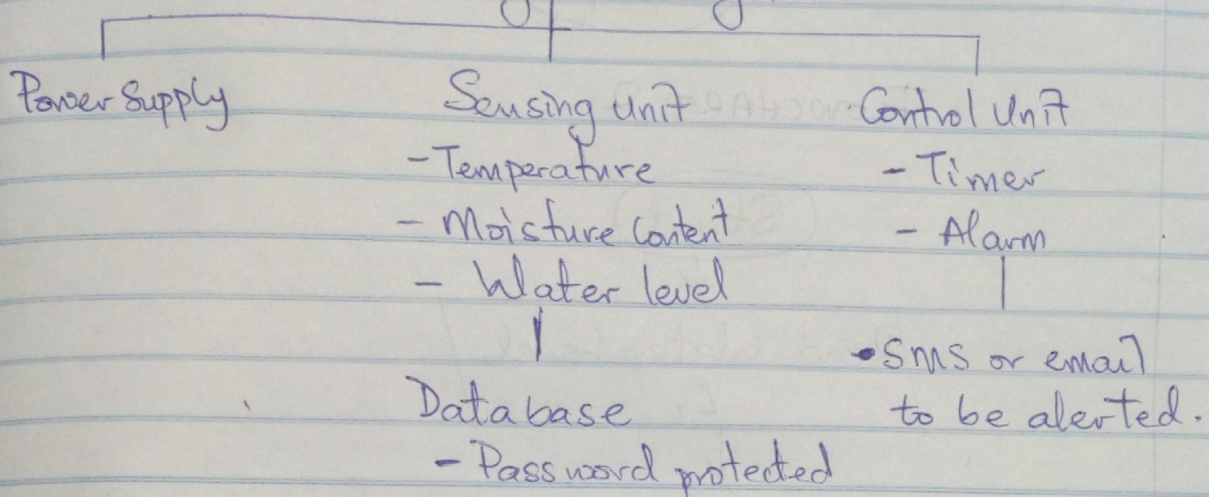 Power Supply
Sensing unit
- Temperature
- Moisture Content
- Water level
Database
- Password protected
Control Unit
- Timer
- Alarm
• SMS or email
to be alerted.